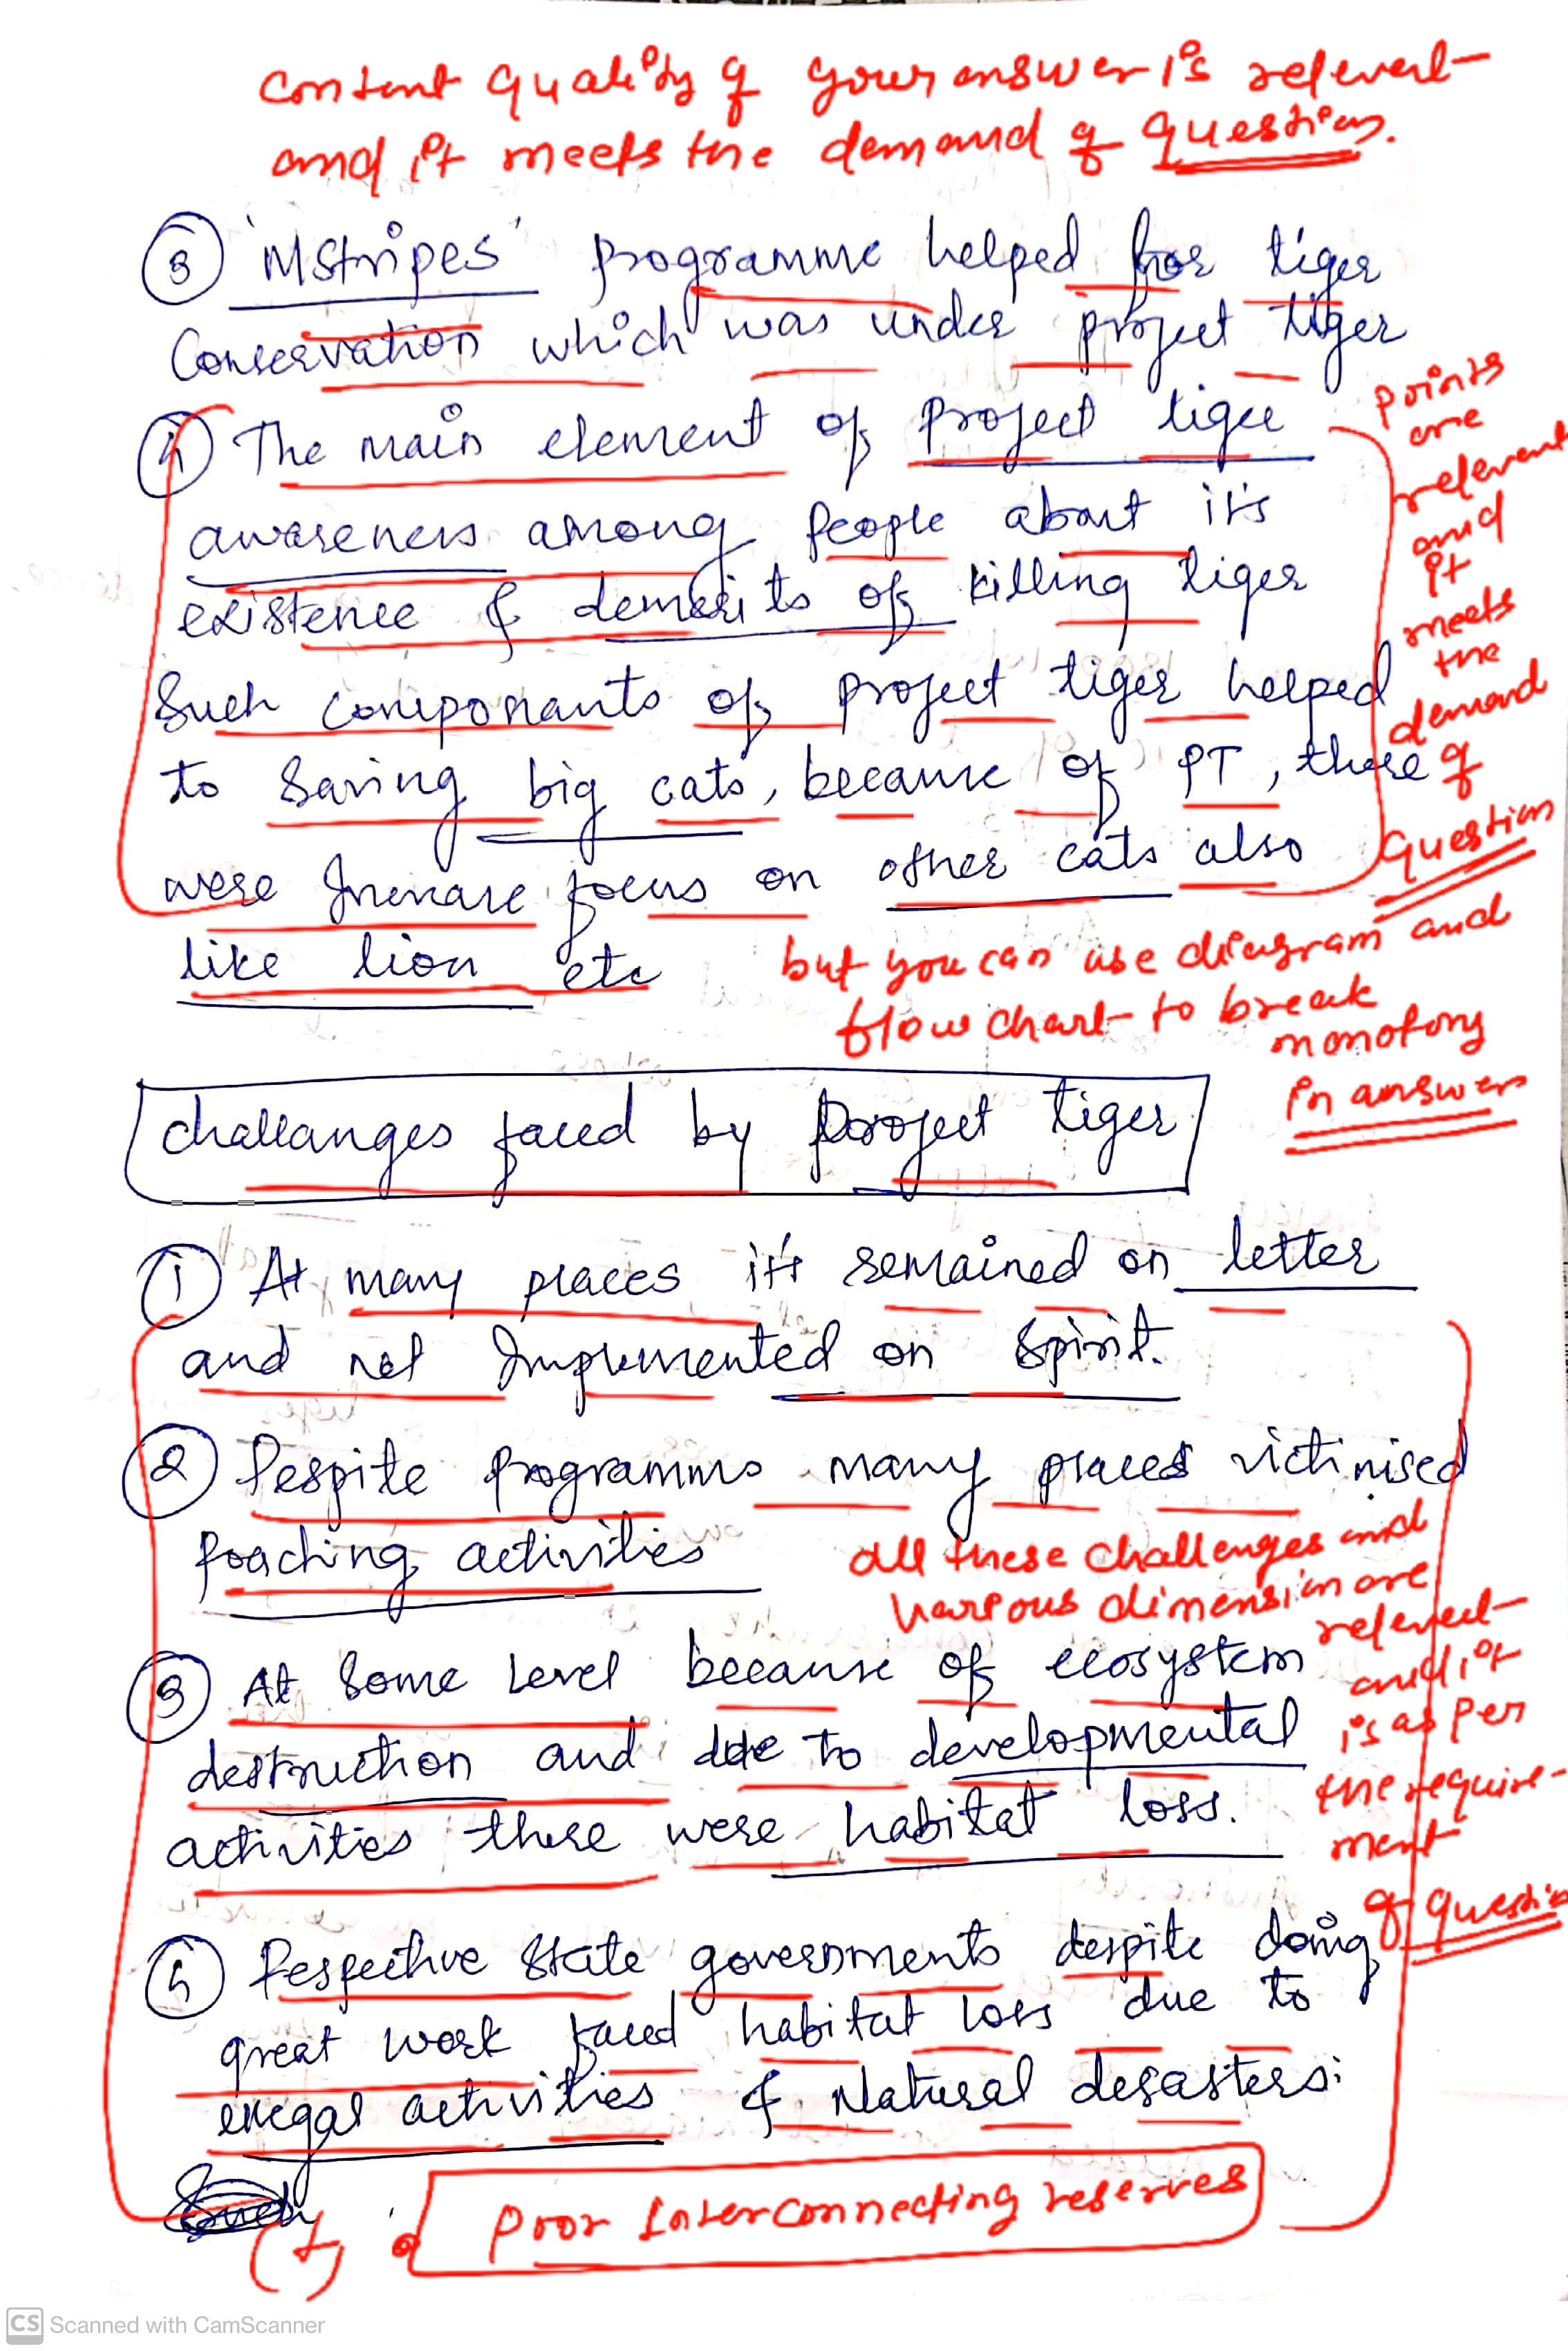 Content quality of your answer is relevent
and it meets the demand of question.
③ 'MStripes' programme helped for tiger
Conservation which was under project tiger
④ The main element of Project tiger
awareness among people about it's
existence & demerits of killing tiger
Such componants of project tiger helped
to saving big cats, because of PT, there
were Increase focus on other cats also
like lion etc
points
are
relevant
and
it
meets
the
demand
of
question
but you can use diagram and
flow chart to break
monotony
in answers
challanges faced by Project tiger
① At many places it's remained on letter
and not Implemented on Spirit.
② Despite programms many places victimised
poaching activities
all these challenges and
various dimension are
relevent
and it
is as per
the require-
ment
of question
③ At Some Level because of ecosystem
destruction and due to developmental
activities there were habitat loss.
④ Respective State governments despite doing
great work faced habitat loss due to
illegal activities & Natural desasters.
Such
(+) • Poor Interconnecting reserves
CS Scanned with CamScanner